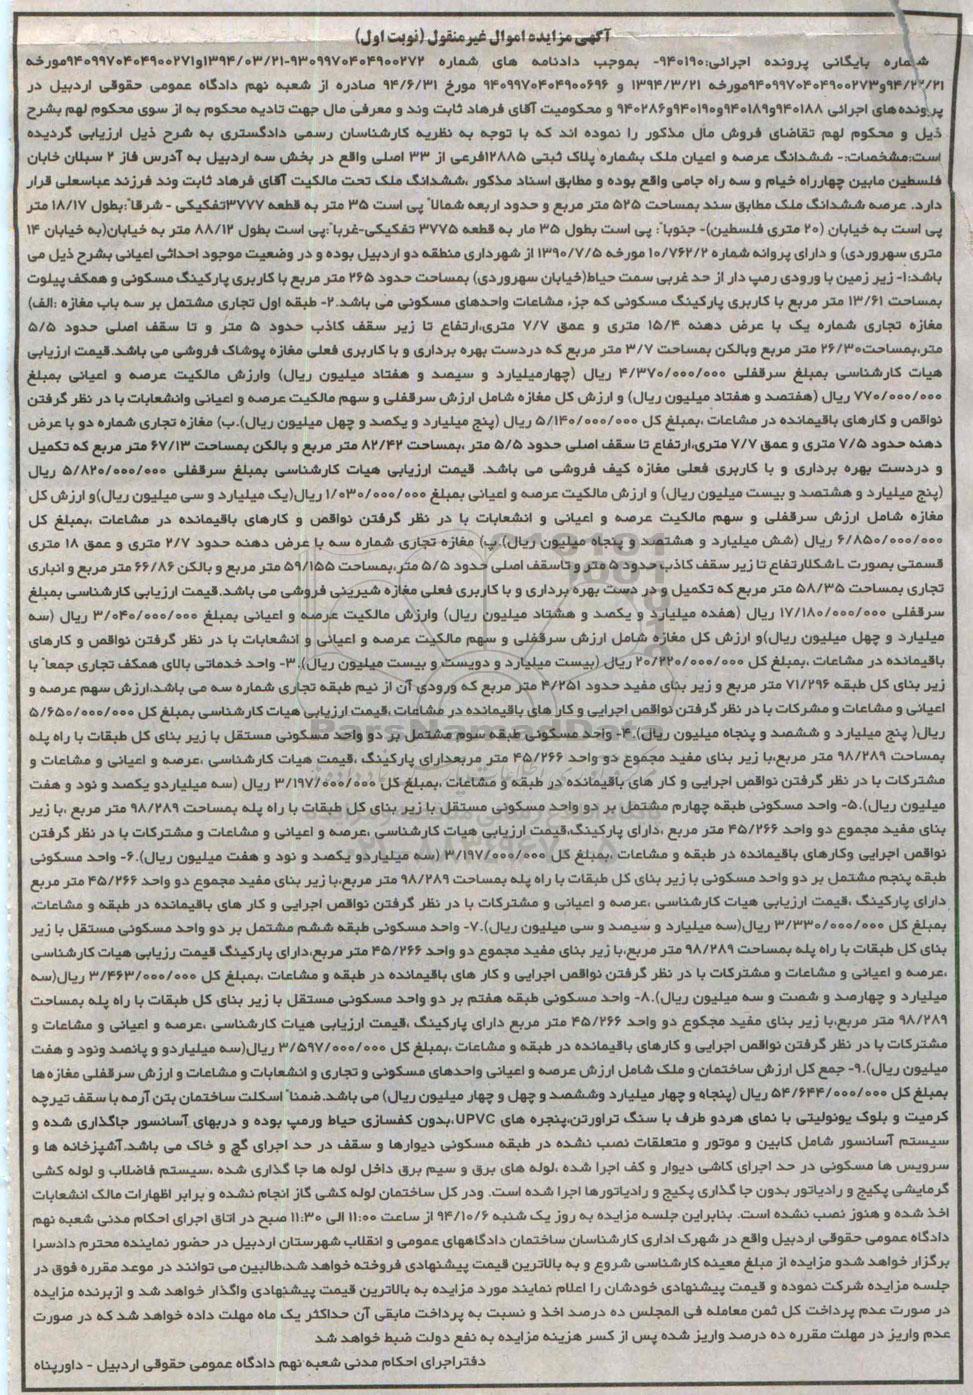 آگهی مزایده اموال غیرمنقول (نوبت اول)
شماره بایگانی پرونده اجرائی:۹۴۰۱۹۰- بموجب دادنامه های شماره ۹۳۰۹۹۷۰۴۰۴۹۰۰۲۷۲-۱۳۹۴/۰۳/۲۱و۹۴۰۹۹۷۰۴۰۴۹۰۰۲۷۱مورخه
۹۴/۳/۲۱و۹۴۰۹۹۷۰۴۰۴۹۰۰۲۷۳مورخه ۱۳۹۴/۳/۲۱ و ۹۴۰۹۹۷۰۴۰۴۹۰۰۶۹۶ مورخ ۹۴/۶/۳۱ صادره از شعبه نهم دادگاه عمومی حقوقی اردبیل در
پرونده‌های اجرائی ۹۴۰۱۸۸و۹۴۰۱۸۹و۹۴۰۱۹۰و۹۴۰۲۸۶ و محکومیت آقای فرهاد ثابت وند و معرفی مال جهت تادیه محکوم به از سوی محکوم لهم بشرح
ذیل و محکوم لهم تقاضای فروش مال مذکور را نموده اند که با توجه به نظریه کارشناسان رسمی دادگستری به شرح ذیل ارزیابی گردیده
است:مشخصات:- ششدانگ عرصه و اعیان ملک بشماره پلاک ثبتی ۱۲۸۸۵فرعی از ۳۳ اصلی واقع در بخش سه اردبیل به آدرس فاز ۲ سبلان خابان
فلسطین مابین چهارراه خیام و سه راه جامی واقع بوده و مطابق اسناد مذکور ،ششدانگ ملک تحت مالکیت آقای فرهاد ثابت وند فرزند عباسعلی قرار
دارد. عرصه ششدانگ ملک مطابق سند بمساحت ۵۲۵ متر مربع و حدود اربعه شمالاً پی است ۳۵ متر به قطعه ۳۷۷۷تفکیکی - شرقاً:بطول ۱۸/۱۷ متر
پی است به خیابان (۲۰ متری فلسطین)- جنوباً: پی است بطول ۳۵ مار به قطعه ۳۷۷۵ تفکیکی-غرباً:پی است بطول ۸۸/۱۲ متر به خیابان(به خیابان ۱۴
متری سهروردی) و دارای پروانه شماره ۱۰/۷۶۲/۲ مورخه ۱۳۹۰/۷/۵ از شهرداری منطقه دو اردبیل بوده و در وضعیت موجود احداثی اعیانی بشرح ذیل می
باشد:۱- زیر زمین با ورودی رمپ دار از حد غربی سمت حیاط(خیابان سهروردی) بمساحت حدود ۲۶۵ متر مربع با کاربری پارکینگ مسکونی و همکف پیلوت
بمساحت ۱۳/۶۱ متر مربع با کاربری پارکینگ مسکونی که جزء مشاعات واحدهای مسکونی می باشد.۲- طبقه اول تجاری مشتمل بر سه باب مغازه :الف)
مغازه تجاری شماره یک با عرض دهنه ۱۵/۴ متری و عمق ۷/۷ متری،ارتفاع تا زیر سقف کاذب حدود ۵ متر و تا سقف اصلی حدود ۵/۵
متر،بمساحت۲۶/۳۰ متر مربع وبالکن بمساحت ۳/۷ متر مربع که دردست بهره برداری و با کاربری فعلی مغازه پوشاک فروشی می باشد.قیمت ارزیابی
هیات کارشناسی بمبلغ سرقفلی ۴/۳۷۰/۰۰۰/۰۰۰ ریال (چهارمیلیارد و سیصد و هفتاد میلیون ریال) وارزش مالکیت عرصه و اعیانی بمبلغ
۷۷۰/۰۰۰/۰۰۰ ریال (هفتصد و هفتاد میلیون ریال) و ارزش کل مغازه شامل ارزش سرقفلی و سهم مالکیت عرصه و اعیانی وانشعابات با در نظر گرفتن
نواقص و کارهای باقیمانده در مشاعات ،بمبلغ کل ۵/۱۴۰/۰۰۰/۰۰۰ ریال (پنج میلیارد و یکصد و چهل میلیون ریال).ب) مغازه تجاری شماره دو با عرض
دهنه حدود ۷/۵ متری و عمق ۷/۷ متری،ارتفاع تا سقف اصلی حدود ۵/۵ متر ،بمساحت ۸۲/۴۲ متر مربع و بالکن بمساحت ۶۷/۱۳ متر مربع که تکمیل
و دردست بهره برداری و با کاربری فعلی مغازه کیف فروشی می باشد. قیمت ارزیابی هیات کارشناسی بمبلغ سرقفلی ۵/۸۲۰/۰۰۰/۰۰۰ ریال
(پنج میلیارد و هشتصد و بیست میلیون ریال) و ارزش مالکیت عرصه و اعیانی بمبلغ ۱/۰۳۰/۰۰۰/۰۰۰ ریال(یک میلیارد و سی میلیون ریال)و ارزش کل
مغازه شامل ارزش سرقفلی و سهم مالکیت عرصه و اعیانی و انشعابات با در نظر گرفتن نواقص و کارهای باقیمانده در مشاعات ،بمبلغ کل
۶/۸۵۰/۰۰۰/۰۰۰ ریال (شش میلیارد و هشتصد و پنجاه میلیون ریال).پ) مغازه تجاری شماره سه با عرض دهنه حدود ۲/۷ متری و عمق ۱۸ متری
قسمتی بصورت Lشکلارتفاع تا زیر سقف کاذب حدود ۵ متر و تاسقف اصلی حدود ۵/۵ متر،بمساحت ۵۹/۱۵۵ متر مربع و بالکن ۶۶/۸۶ متر مربع و انباری
تجاری بمساحت ۵۸/۳۵ متر مربع که تکمیل و در دست بهره برداری و با کاربری فعلی مغازه شیرینی فروشی می باشد.قیمت ارزیابی کارشناسی بمبلغ
سرقفلی ۱۷/۱۸۰/۰۰۰/۰۰۰ ریال (هفده میلیارد و یکصد و هشتاد میلیون ریال) وارزش مالکیت عرصه و اعیانی بمبلغ ۳/۰۴۰/۰۰۰/۰۰۰ ریال (سه
میلیارد و چهل میلیون ریال)و ارزش کل مغازه شامل ارزش سرقفلی و سهم مالکیت عرصه و اعیانی و انشعابات با در نظر گرفتن نواقص و کارهای
باقیمانده در مشاعات ،بمبلغ کل ۲۰/۲۲۰/۰۰۰/۰۰۰ ریال (بیست میلیارد و دویست و بیست میلیون ریال). ۳- واحد خدماتی بالای همکف تجاری جمعاً با
زیر بنای کل طبقه ۷۱/۲۹۶ متر مربع و زیر بنای مفید حدود ۴/۲۵۱ متر مربع که ورودی آن از نیم طبقه تجاری شماره سه می باشد،ارزش سهم عرصه و
اعیانی و مشاعات و مشرکات با در نظر گرفتن نواقص اجرایی و کار های باقیمانده در مشاعات ،قیمت ارزیابی هیات کارشناسی بمبلغ کل ۵/۶۵۰/۰۰۰/۰۰۰
ریال( پنج میلیارد و ششصد و پنجاه میلیون ریال).۴- واحد مسکونی طبقه سوم مشتمل بر دو واحد مسکونی مستقل با زیر بنای کل طبقات با راه پله
بمساحت ۹۸/۲۸۹ متر مربع،با زیر بنای مفید مجموع دو واحد ۴۵/۲۶۶ متر مربعدارای پارکینگ ،قیمت هیات کارشناسی ،عرصه و اعیانی و مشاعات و
مشترکات با در نظر گرفتن نواقص اجرایی و کار های باقیمانده در طبقه و مشاعات ،بمبلغ کل ۳/۱۹۷/۰۰۰/۰۰۰ ریال (سه میلیاردو یکصد و نود و هفت
میلیون ریال).۵- واحد مسکونی طبقه چهارم مشتمل بر دو واحد مسکونی مستقل با زیر بنای کل طبقات با راه پله بمساحت ۹۸/۲۸۹ متر مربع ،با زیر
بنای مفید مجموع دو واحد ۴۵/۲۶۶ متر مربع ،دارای پارکینگ،قیمت ارزیابی هیات کارشناسی ،عرصه و اعیانی و مشاعات و مشترکات با در نظر گرفتن
نواقص اجرایی وکارهای باقیمانده در طبقه و مشاعات ،بمبلغ کل ۳/۱۹۷/۰۰۰/۰۰۰ (سه میلیاردو یکصد و نود و هفت میلیون ریال).۶- واحد مسکونی
طبقه پنجم مشتمل بر دو واحد مسکونی با زیر بنای کل طبقات با راه پله بمساحت ۹۸/۲۸۹ متر مربع،با زیر بنای مفید مجموع دو واحد ۴۵/۲۶۶ متر مربع
دارای پارکینگ ،قیمت ارزیابی هیات کارشناسی ،عرصه و اعیانی و مشترکات با در نظر گرفتن نواقص اجرایی و کار های باقیمانده در طبقه و مشاعات،
بمبلغ کل ۳/۳۳۰/۰۰۰/۰۰۰ ریال(سه میلیارد و سیصد و سی میلیون ریال).۷- واحد مسکونی طبقه ششم مشتمل بر دو واحد مسکونی مستقل با زیر
بنای کل طبقات با راه پله بمساحت ۹۸/۲۸۹ متر مربع،با زیر بنای مفید مجموع دو واحد ۴۵/۲۶۶ متر مربع،دارای پارکینگ قیمت رزیابی هیات کارشناسی
،عرصه و اعیانی و مشاعات و مشترکات با در نظر گرفتن نواقص اجرایی و کار های باقیمانده در طبقه و مشاعات ،بمبلغ کل ۳/۴۶۳/۰۰۰/۰۰۰ ریال(سه
میلیارد و چهارصد و شصت و سه میلیون ریال).۸- واحد مسکونی طبقه هفتم بر دو واحد مسکونی مستقل با زیر بنای کل طبقات با راه پله بمساحت
۹۸/۲۸۹ متر مربع،با زیر بنای مفید مجکوع دو واحد ۴۵/۲۶۶ متر مربع دارای پارکینگ ،قیمت ارزیابی هیات کارشناسی ،عرصه و اعیانی و مشاعات و
مشترکات با در نظر گرفتن نواقص اجرایی و کارهای باقیمانده در طبقه و مشاعات ،بمبلغ کل ۳/۵۹۷/۰۰۰/۰۰۰ ریال(سه میلیاردو و پانصد ونود و هفت
میلیون ریال).۹- جمع کل ارزش ساختمان و ملک شامل ارزش عرصه و اعیانی واحدهای مسکونی و تجاری و انشعابات و مشاعات و ارزش سرقفلی مغازه‌ها
بمبلغ کل ۵۴/۶۴۴/۰۰۰/۰۰۰ ریال (پنجاه و چهار میلیارد وششصد و چهل و چهار میلیون ریال) می باشد.ضمناً اسکلت ساختمان بتن آرمه با سقف تیرچه
کرمیت و بلوک یونولیتی با نمای هردو طرف با سنگ تراورتن،پنجره های UPVC،بدون کفسازی حیاط ورمپ بوده و دربهای آسانسور جاگذاری شده و
سیستم آسانسور شامل کابین و موتور و متعلقات نصب نشده در طبقه مسکونی دیوارها و سقف در حد اجرای گچ و خاک می باشد.آشپزخانه ها و
سرویس ها مسکونی در حد اجرای کاشی دیوار و کف اجرا شده ،لوله های برق و سیم برق داخل لوله ها جا گذاری شده ،سیستم فاضلاب و لوله کشی
گرمایشی پکیج و رادیاتور بدون جا گذاری پکیج و رادیاتورها اجرا شده است. ودر کل ساختمان لوله کشی گاز انجام نشده و برابر اظهارات مالک انشعابات
اخذ شده و هنوز نصب نشده است. بنابراین جلسه مزایده به روز یک شنبه ۹۴/۱۰/۶ از ساعت ۱۱:۰۰ الی ۱۱:۳۰ صبح در اتاق اجرای احکام مدنی شعبه نهم
دادگاه عمومی حقوقی اردبیل واقع در شهرک اداری کارشناسان ساختمان دادگاههای عمومی و انقلاب شهرستان اردبیل در حضور نماینده محترم دادسرا
برگزار خواهد شدو مزایده از مبلغ معینه کارشناسی شروع و به بالاترین قیمت پیشنهادی فروخته خواهد شد،طالبین می توانند در موعد مقرره فوق در
جلسه مزایده شرکت نموده و قیمت پیشنهادی خودشان را اعلام نمایند مورد مزایده به بالاترین قیمت پیشنهادی واگذار خواهد شد و ازبرنده مزایده
در صورت عدم پرداخت کل ثمن معامله فی المجلس ده درصد اخذ و نسبت به پرداخت مابقی آن حداکثر یک ماه مهلت داده خواهد شد که در صورت
عدم واریز در مهلت مقرره ده درصد واریز شده پس از کسر هزینه مزایده به نفع دولت ضبط خواهد شد
دفتراجرای احکام مدنی شعبه نهم دادگاه عمومی حقوقی اردبیل - داورپناه